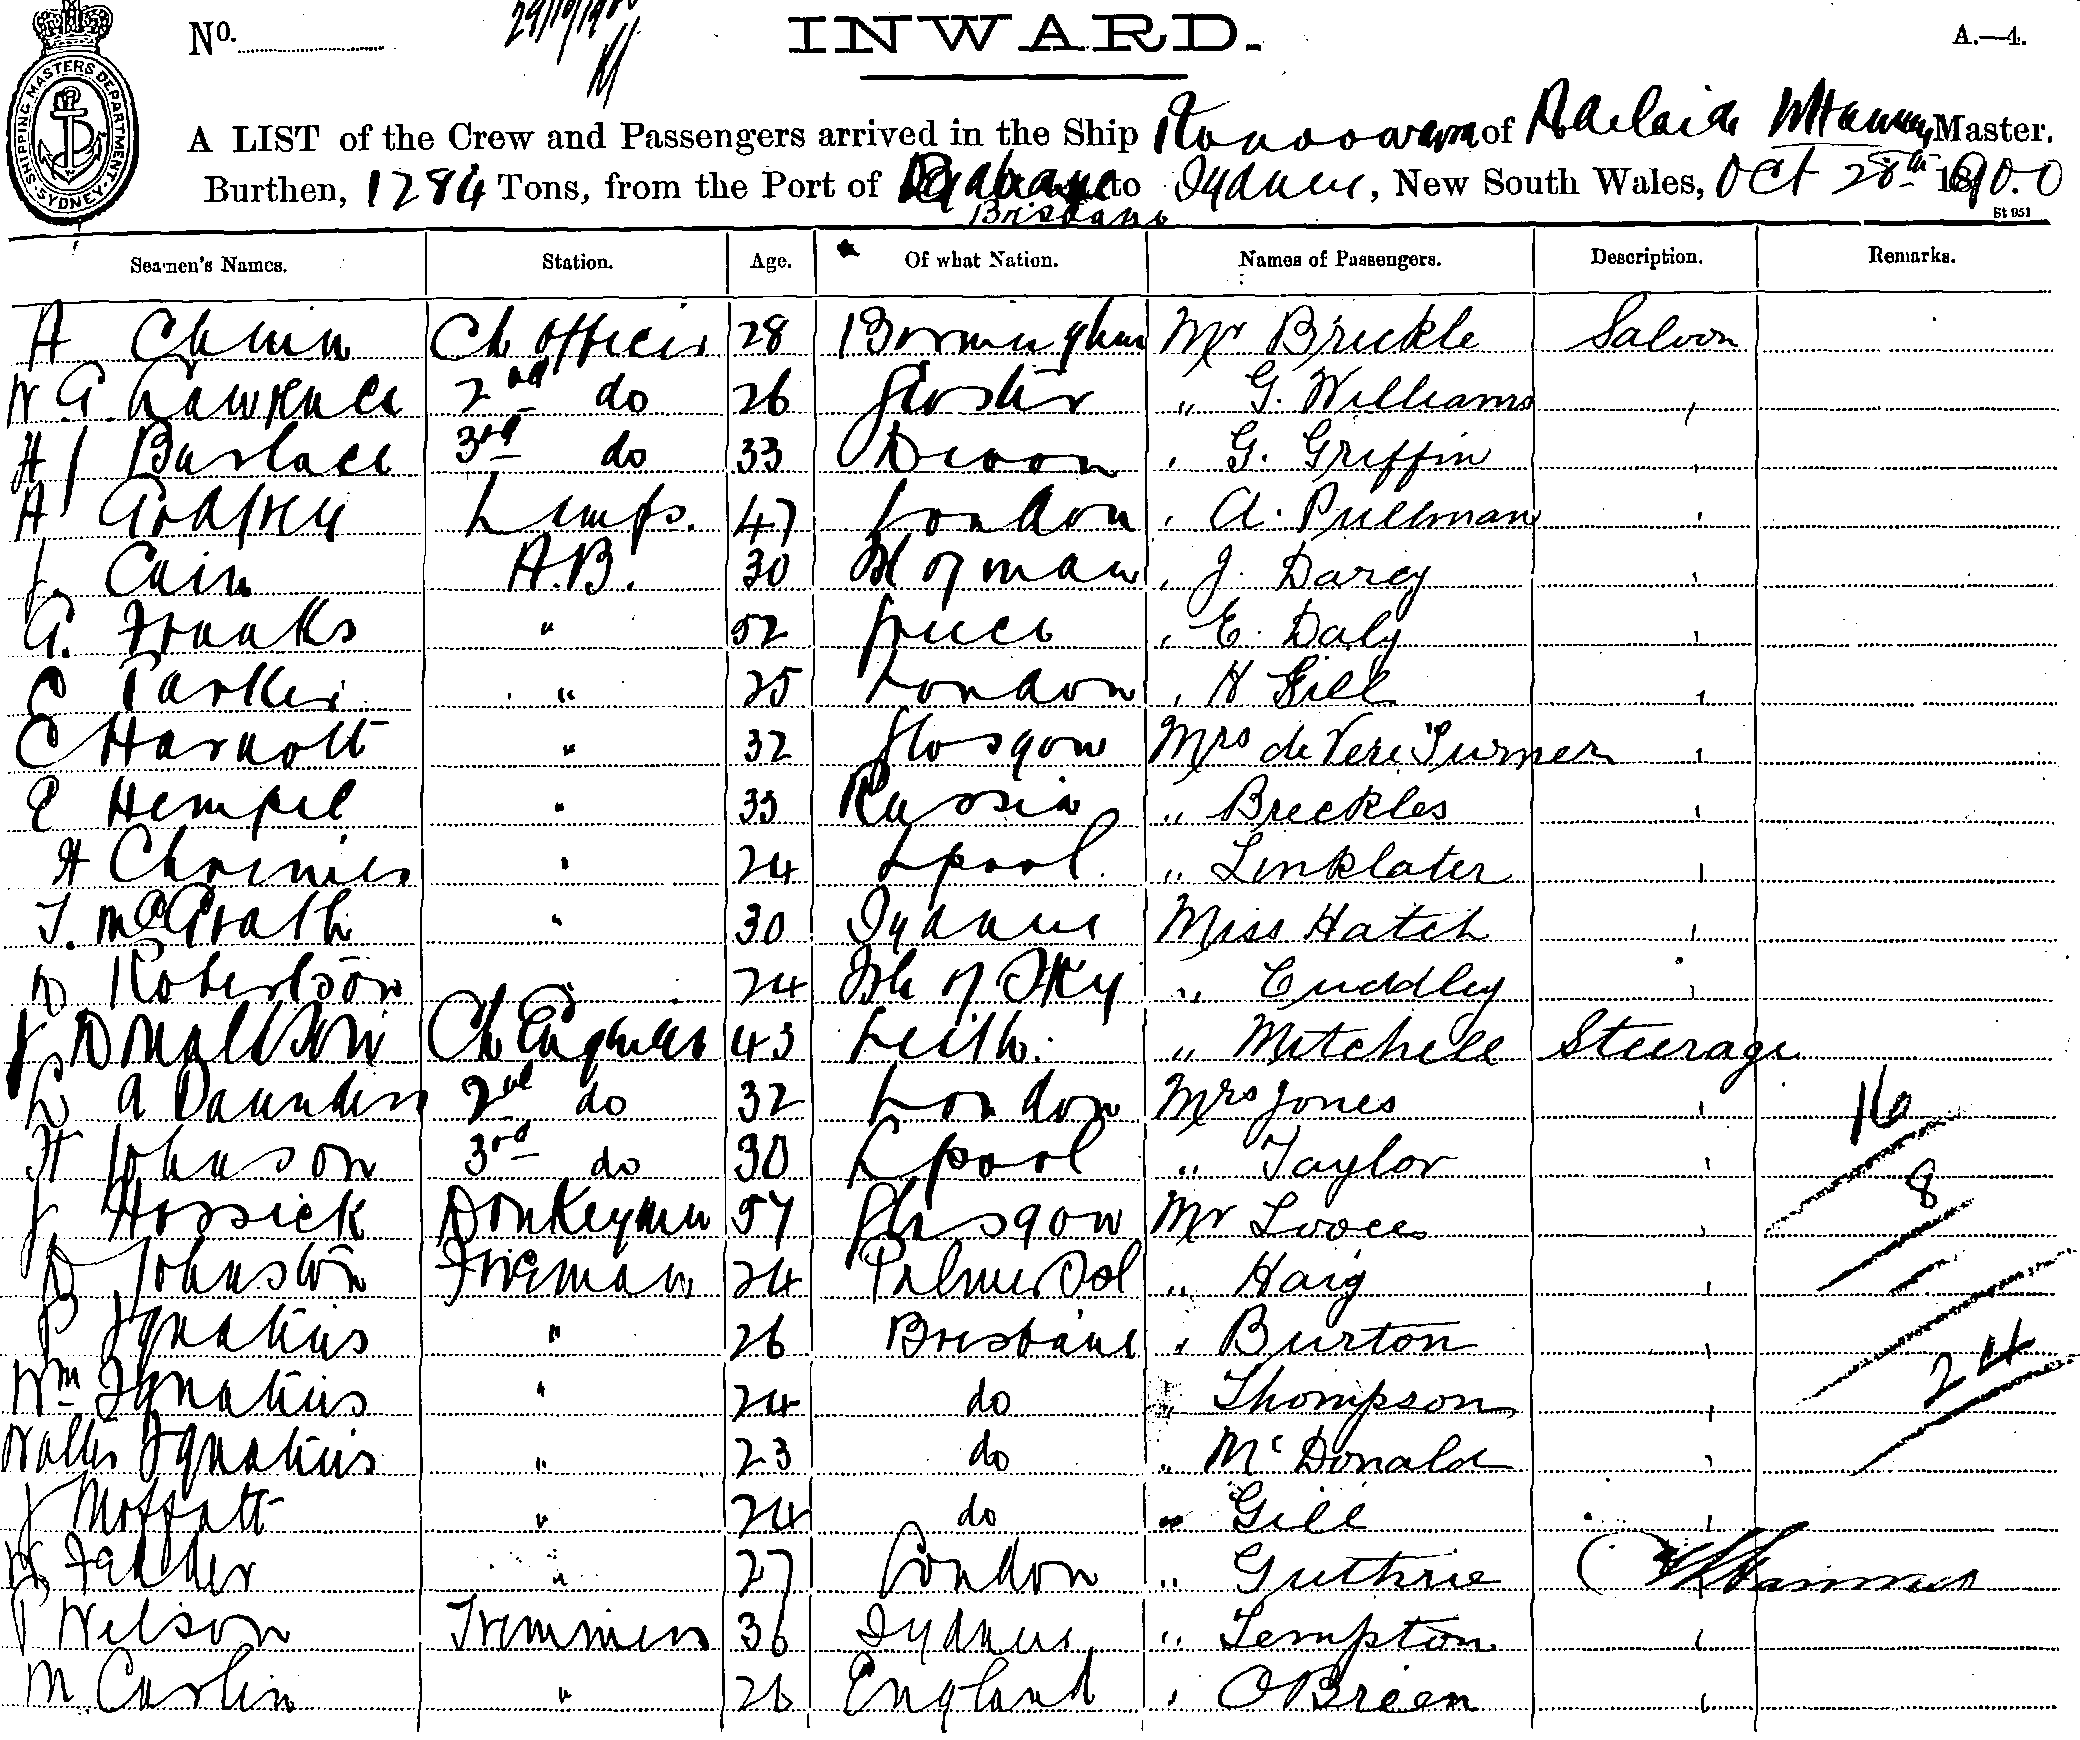 SHIPPING MASTERS DEPARTMENT
SYDNEY
No.
29/10/1900
INWARD.
A.—4.
A LIST of the Crew and Passengers arrived in the Ship of Adelaide Master.
Burthen, 1284 Tons, from the Port of to Sydney, New South Wales, Oct 28th 1900
Brisbane
St 951
Seamen's Names. Station. Age. Of what Nation. Names of Passengers. Description. Remarks.
A Ch officer 28 Birmingham Mr Brickle Saloon
W. G. Lawrence 2nd do 26 Gloster " G. Williams "
H J Burlace 3rd do 33 Devon " G. Griffin "
A Godfrey Lamps. 47 London " A. Pullman "
J. Cain A.B. 30 Isl of man " J. Darcy "
G. Franks " 52 Greece " E. Daly "
E Parker " 25 London " H Gill "
C Harnott " 32 Glasgow Mrs de Vere Turner "
E Hempel " 33 Russia " Breckles "
A " 24 Lpool " Linklater "
T. McGrath " 30 Sydney Miss Hatch "
D Robertson " 24 Isle of Sky " Cuddley "
J Donaldson Ch Engineer 43 Leith. " Mitchell Steerage
L A Daunders 2nd do 32 London Mrs Jones " 16
H Johnson 3rd do 30 Lpool " Taylor "
J Hossick Donkeyman 57 Glasgow Mr " 8
Johnston Fireman 24 " Haig "
P Ignatius " 26 Brisbane " Burton "
Wm Ignatius " 24 do " Thompson " 24
Walter Ignatius " 23 do " McDonald "
J Moffatt " 24 do " Gill "
" 27 London " Guthrie
P Wilson Trimmers 36 Sydney " Tempton "
M Carlin " 26 England " O'Breen "